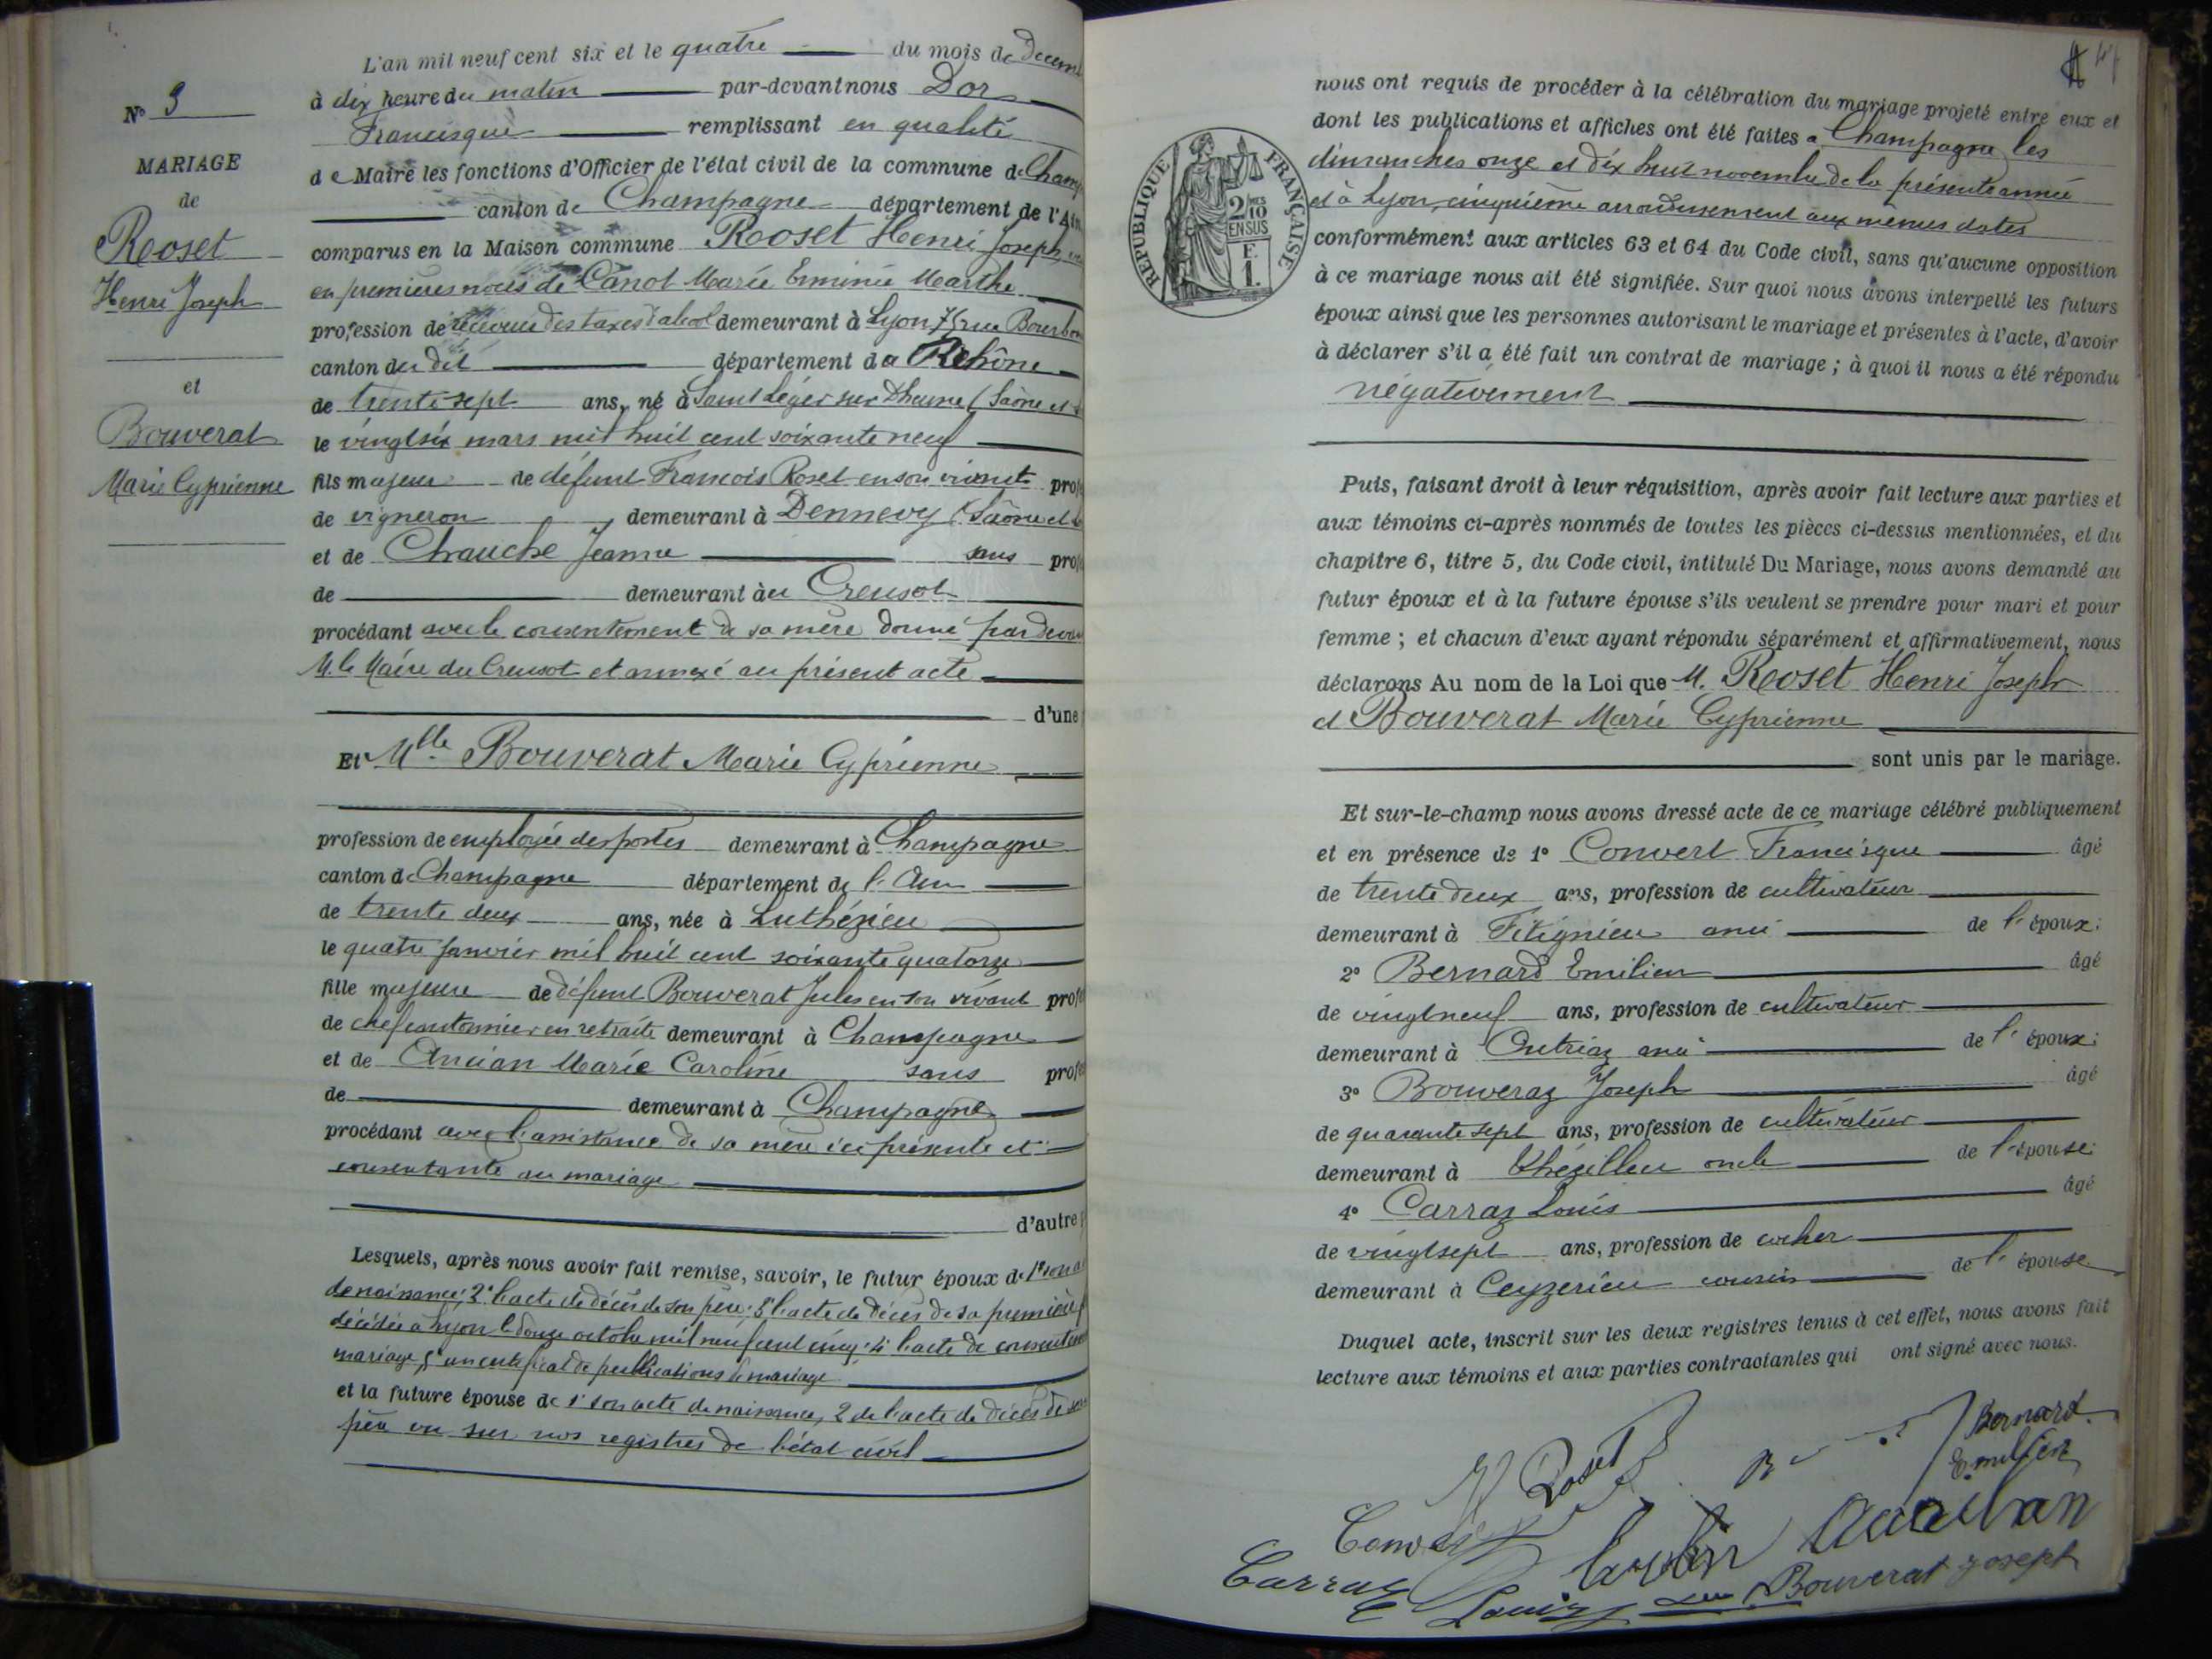 L'an mil neuf cent six et le quatre du mois de Decem
à dix heure du matin par-devant nous Dor
Francisque remplissant en qualité
de Maire les fonctions d'Officier de l'état civil de la commune de Champ
canton de Champagne département de l'Ain
comparus en la Maison commune Rooset Henri Joseph
en premieres noces de Canot Marie Erminie Marthe
profession de receveur des taxes d'alcool demeurant à Lyon 75 rue Bourbon
canton du dit département du Rhône
de trente sept ans, né à Saint Léger sur Dheune (Saône et
le vingt six mars mil huit cent soixante neuf
fils majeur de défunt François Roset en son vivant prof
de vigneron demeurant à Dennevy (Saône et
et de Chauche Jeanne sans prof
de demeurant au Creusot
procédant avec le consentement de sa mère donné par devan
M. le Maire du Creusot et annexé au présent acte
d'une
Et Mlle Bouverat Marie Cyprienne
profession de employée des postes demeurant à Champagne
canton de Champagne département de l'Ain
de trente deux ans, née à Luthézieu
le quatre janvier mil huit cent soixante quatorze
fille majeure de défunt Bouverat Jules en son vivant prof
de chef cantonnier en retraite demeurant à Champagne
et de Ancian Marie Caroline sans profe
de demeurant à Champagne
procédant avec l'assistance de sa mère ici présente et
consentante au mariage
d'autre
Lesquels, après nous avoir fait remise, savoir, le futur époux de 1° son a
de naissance; 2° l'acte de décès de son père; 3° l'acte de décès de sa première f
décédée à Lyon le douze octobre mil neuf cent cinq; 4° l'acte de consentem
mariage, 5° un certificat de publications de mariage
et la future épouse de 1° son acte de naissance, 2 de l'acte de décès de son
père vu sur nos registres de l'état civil
N° 9
MARIAGE
de
Rooset
Henri Joseph
et
Bouverat
Marie Cyprienne
nous ont requis de procéder à la célébration du mariage projeté entre eux et
dont les publications et affiches ont été faites à Champagne les
dimanches onze et dix huit novembre de la présente année
et à Lyon, cinquième arrondissement aux mêmes dates
conformément aux articles 63 et 64 du Code civil, sans qu'aucune opposition
à ce mariage nous ait été signifiée. Sur quoi nous avons interpellé les futurs
époux ainsi que les personnes autorisant le mariage et présentes à l'acte, d'avoir
à déclarer s'il a été fait un contrat de mariage ; à quoi il nous a été répondu
négativement
RÉPUBLIQUE FRANÇAISE
2/10
EN SUS
F.
1.
Puis, faisant droit à leur réquisition, après avoir fait lecture aux parties et
aux témoins ci-après nommés de toutes les pièces ci-dessus mentionnées, et du
chapitre 6, titre 5, du Code civil, intitulé Du Mariage, nous avons demandé au
futur époux et à la future épouse s'ils veulent se prendre pour mari et pour
femme ; et chacun d'eux ayant répondu séparément et affirmativement, nous
déclarons Au nom de la Loi que M. Rooset Henri Joseph
et Bouverat Marie Cyprienne
sont unis par le mariage.
Et sur-le-champ nous avons dressé acte de ce mariage célébré publiquement
et en présence de 1° Convert Francisque âgé
de trente deux ans, profession de cultivateur
demeurant à Fitignieu ami de l'époux;
2° Bernard Emilien âgé
de vingt neuf ans, profession de cultivateur
demeurant à Outriaz ami de l'époux;
3° Bouveraz Joseph âgé
de quarante sept ans, profession de cultivateur
demeurant à Thézillieu oncle de l'épouse;
4° Carraz Louis âgé
de vingt sept ans, profession de cocher
demeurant à Ceyzerieu cousin de l'épouse
Duquel acte, inscrit sur les deux registres tenus à cet effet, nous avons fait
lecture aux témoins et aux parties contractantes qui ont signé avec nous.
Roset
Bernard
Emilien
Convert
Carraz
Louis
Bouverat Joseph